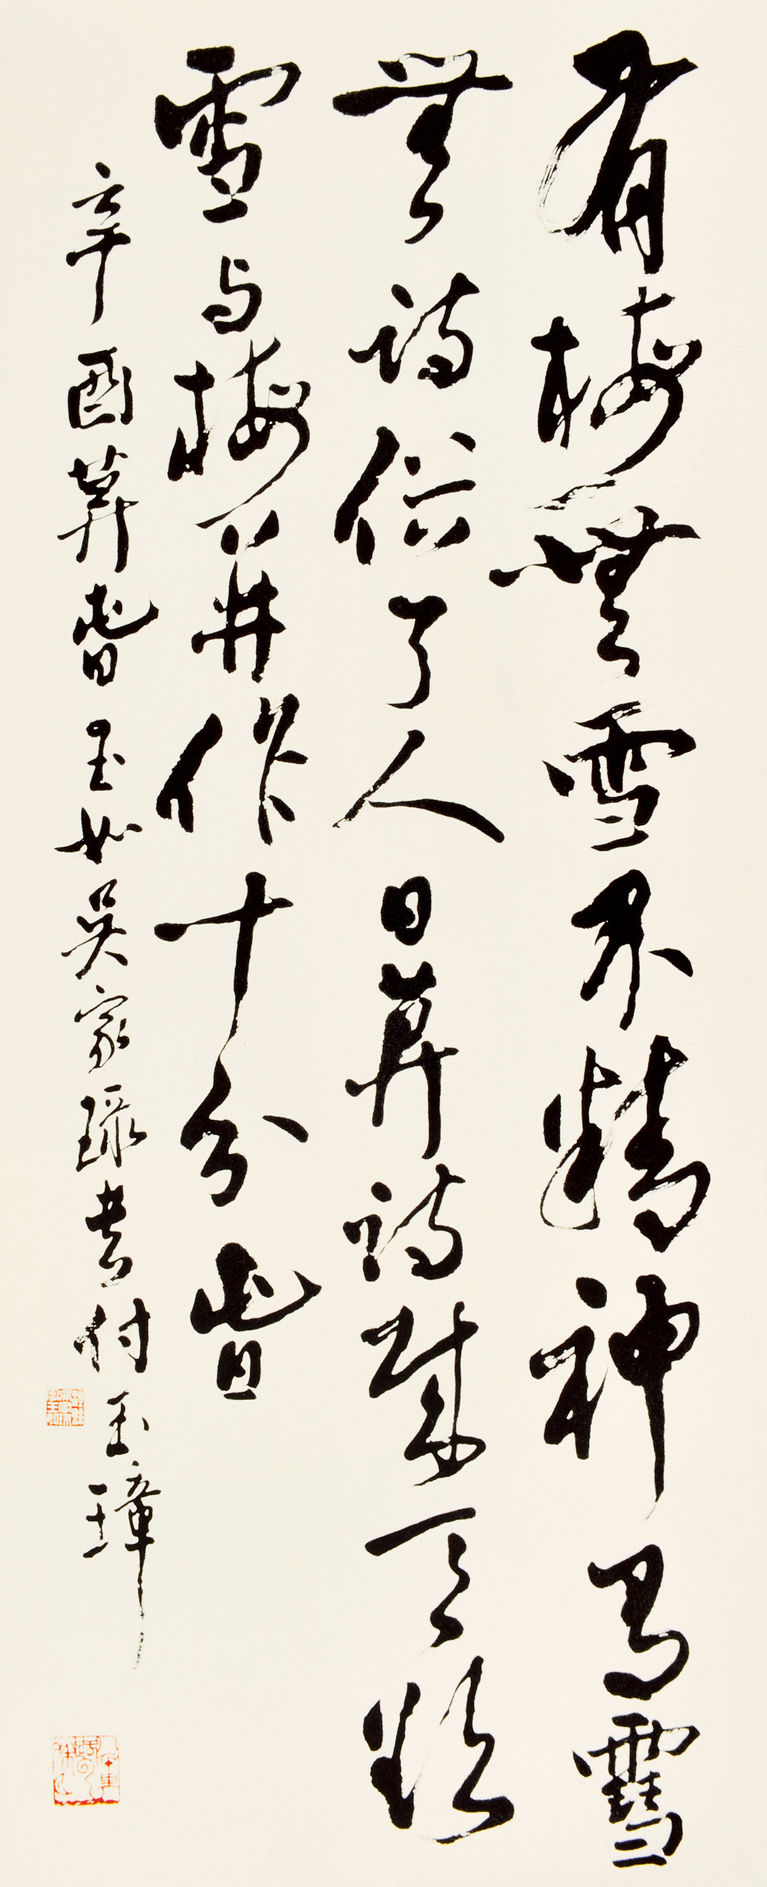 有梅無雪不精神有雪
無詩俗了人日莫詩成天欲
雪与梅并作十分春
辛酉莫春玉如吴家琭书付玉璋